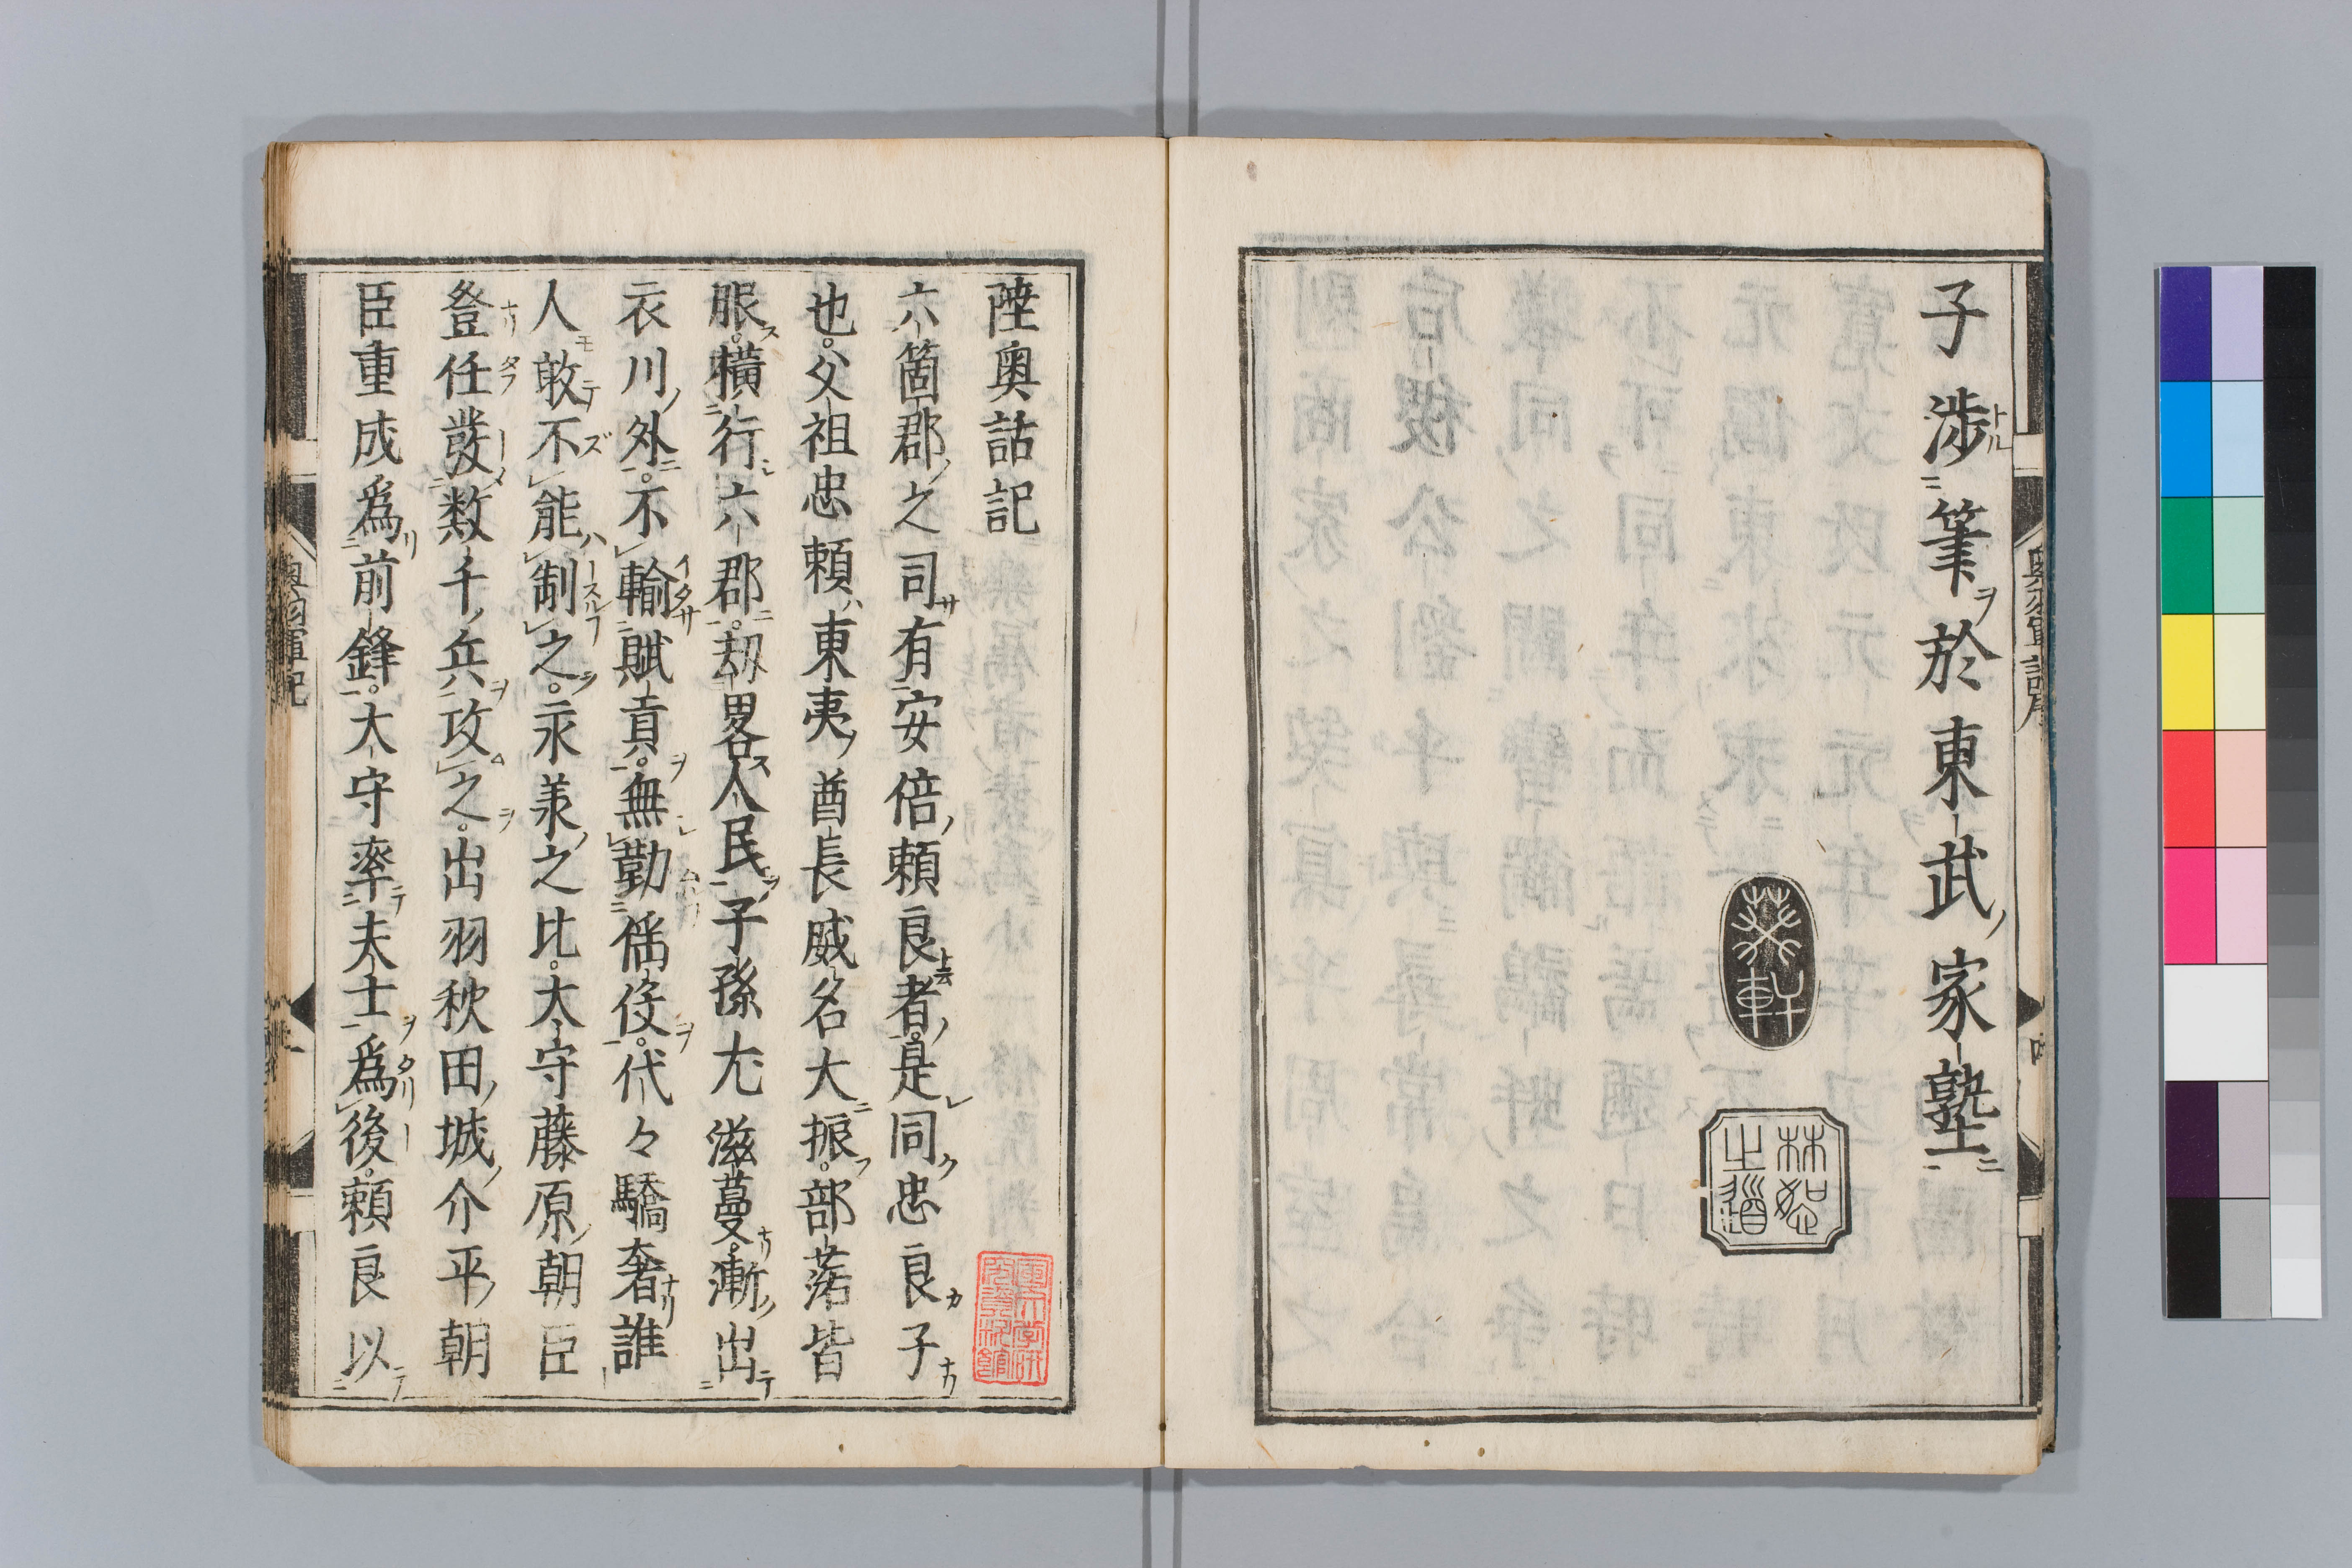 子渉筆於東武家塾
葵軒
林恕之道
陸奧話記
六箇郡之司有安倍頼良者是同忠良子
也父祖忠頼東夷酋長威名大振部落皆
服横行六郡劫畧人民子孫尤滋蔓漸出
衣川外不輸賦貢無勤徭役代々驕奢誰
人敢不能制之永羕之比大守藤原朝臣
登任發数千兵攻之出羽秋田城介平朝
臣重成爲前鋒大守率夫士爲後頼良以